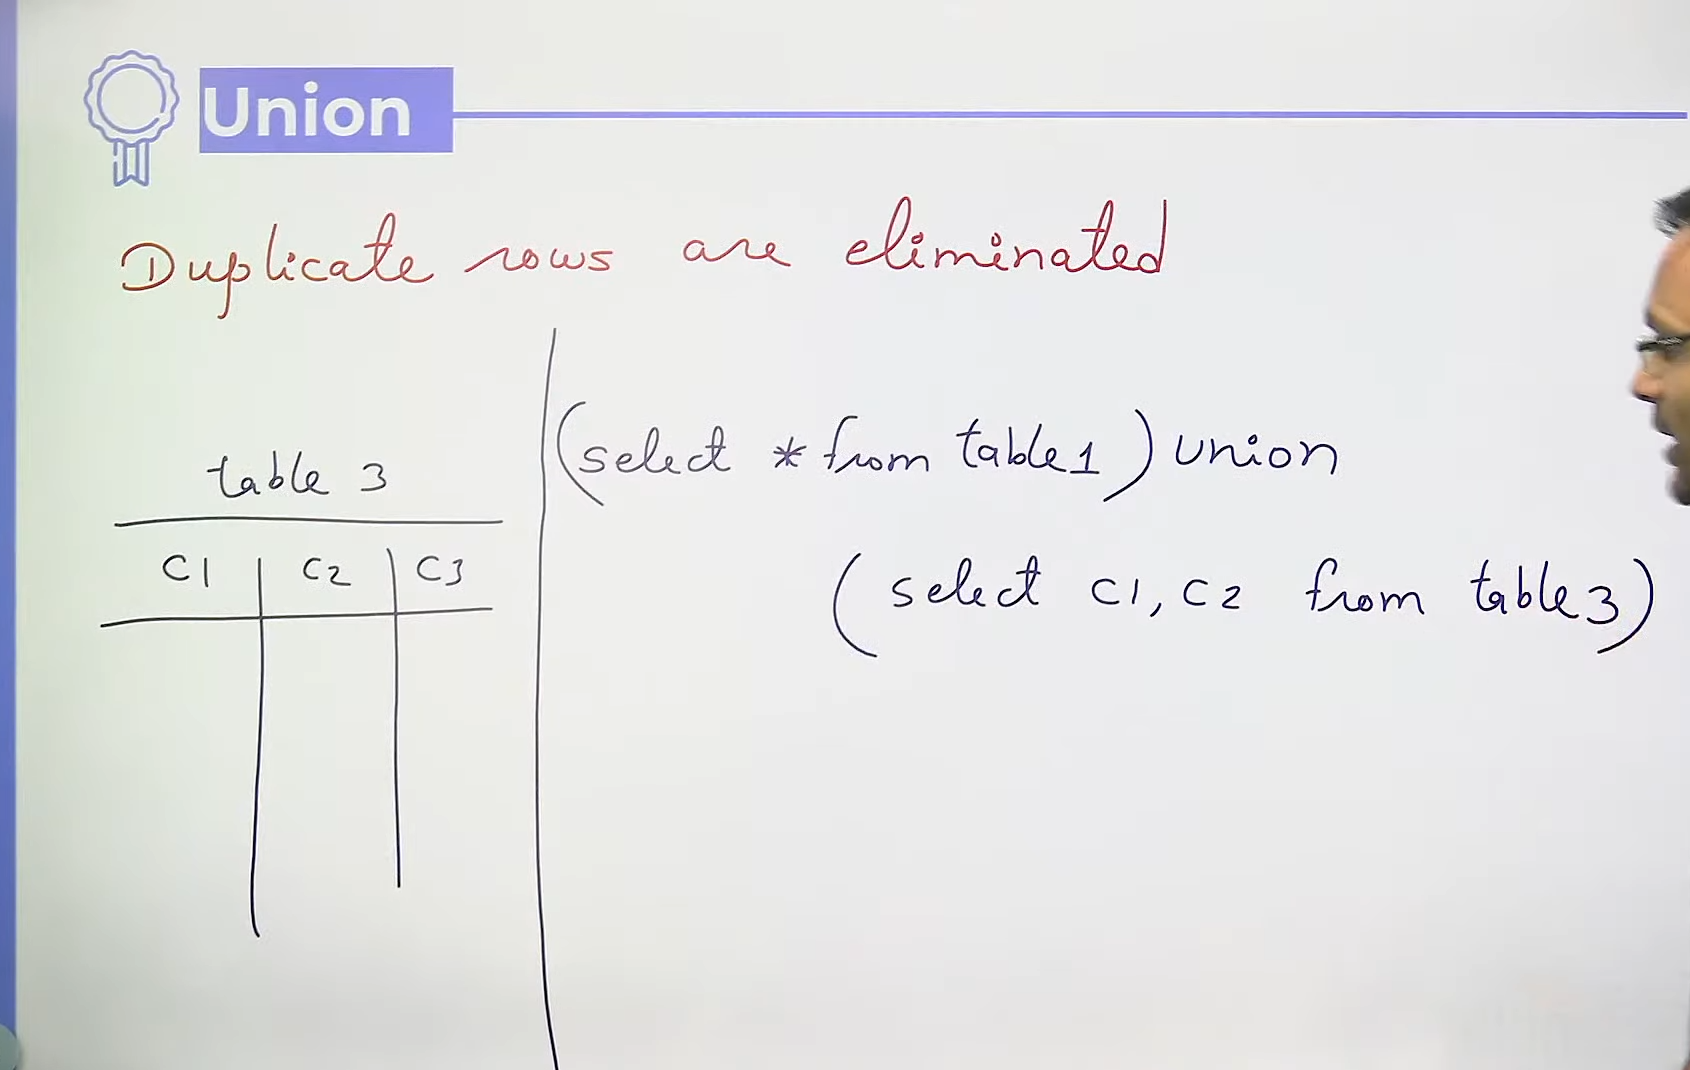 Union
Duplicate rows are eliminated
table 3
C1 C2 C3
(select * from table1) union
(select C1, C2 from table3)